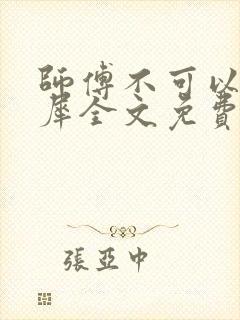 師傅不可以
犀全文免費
張亞中